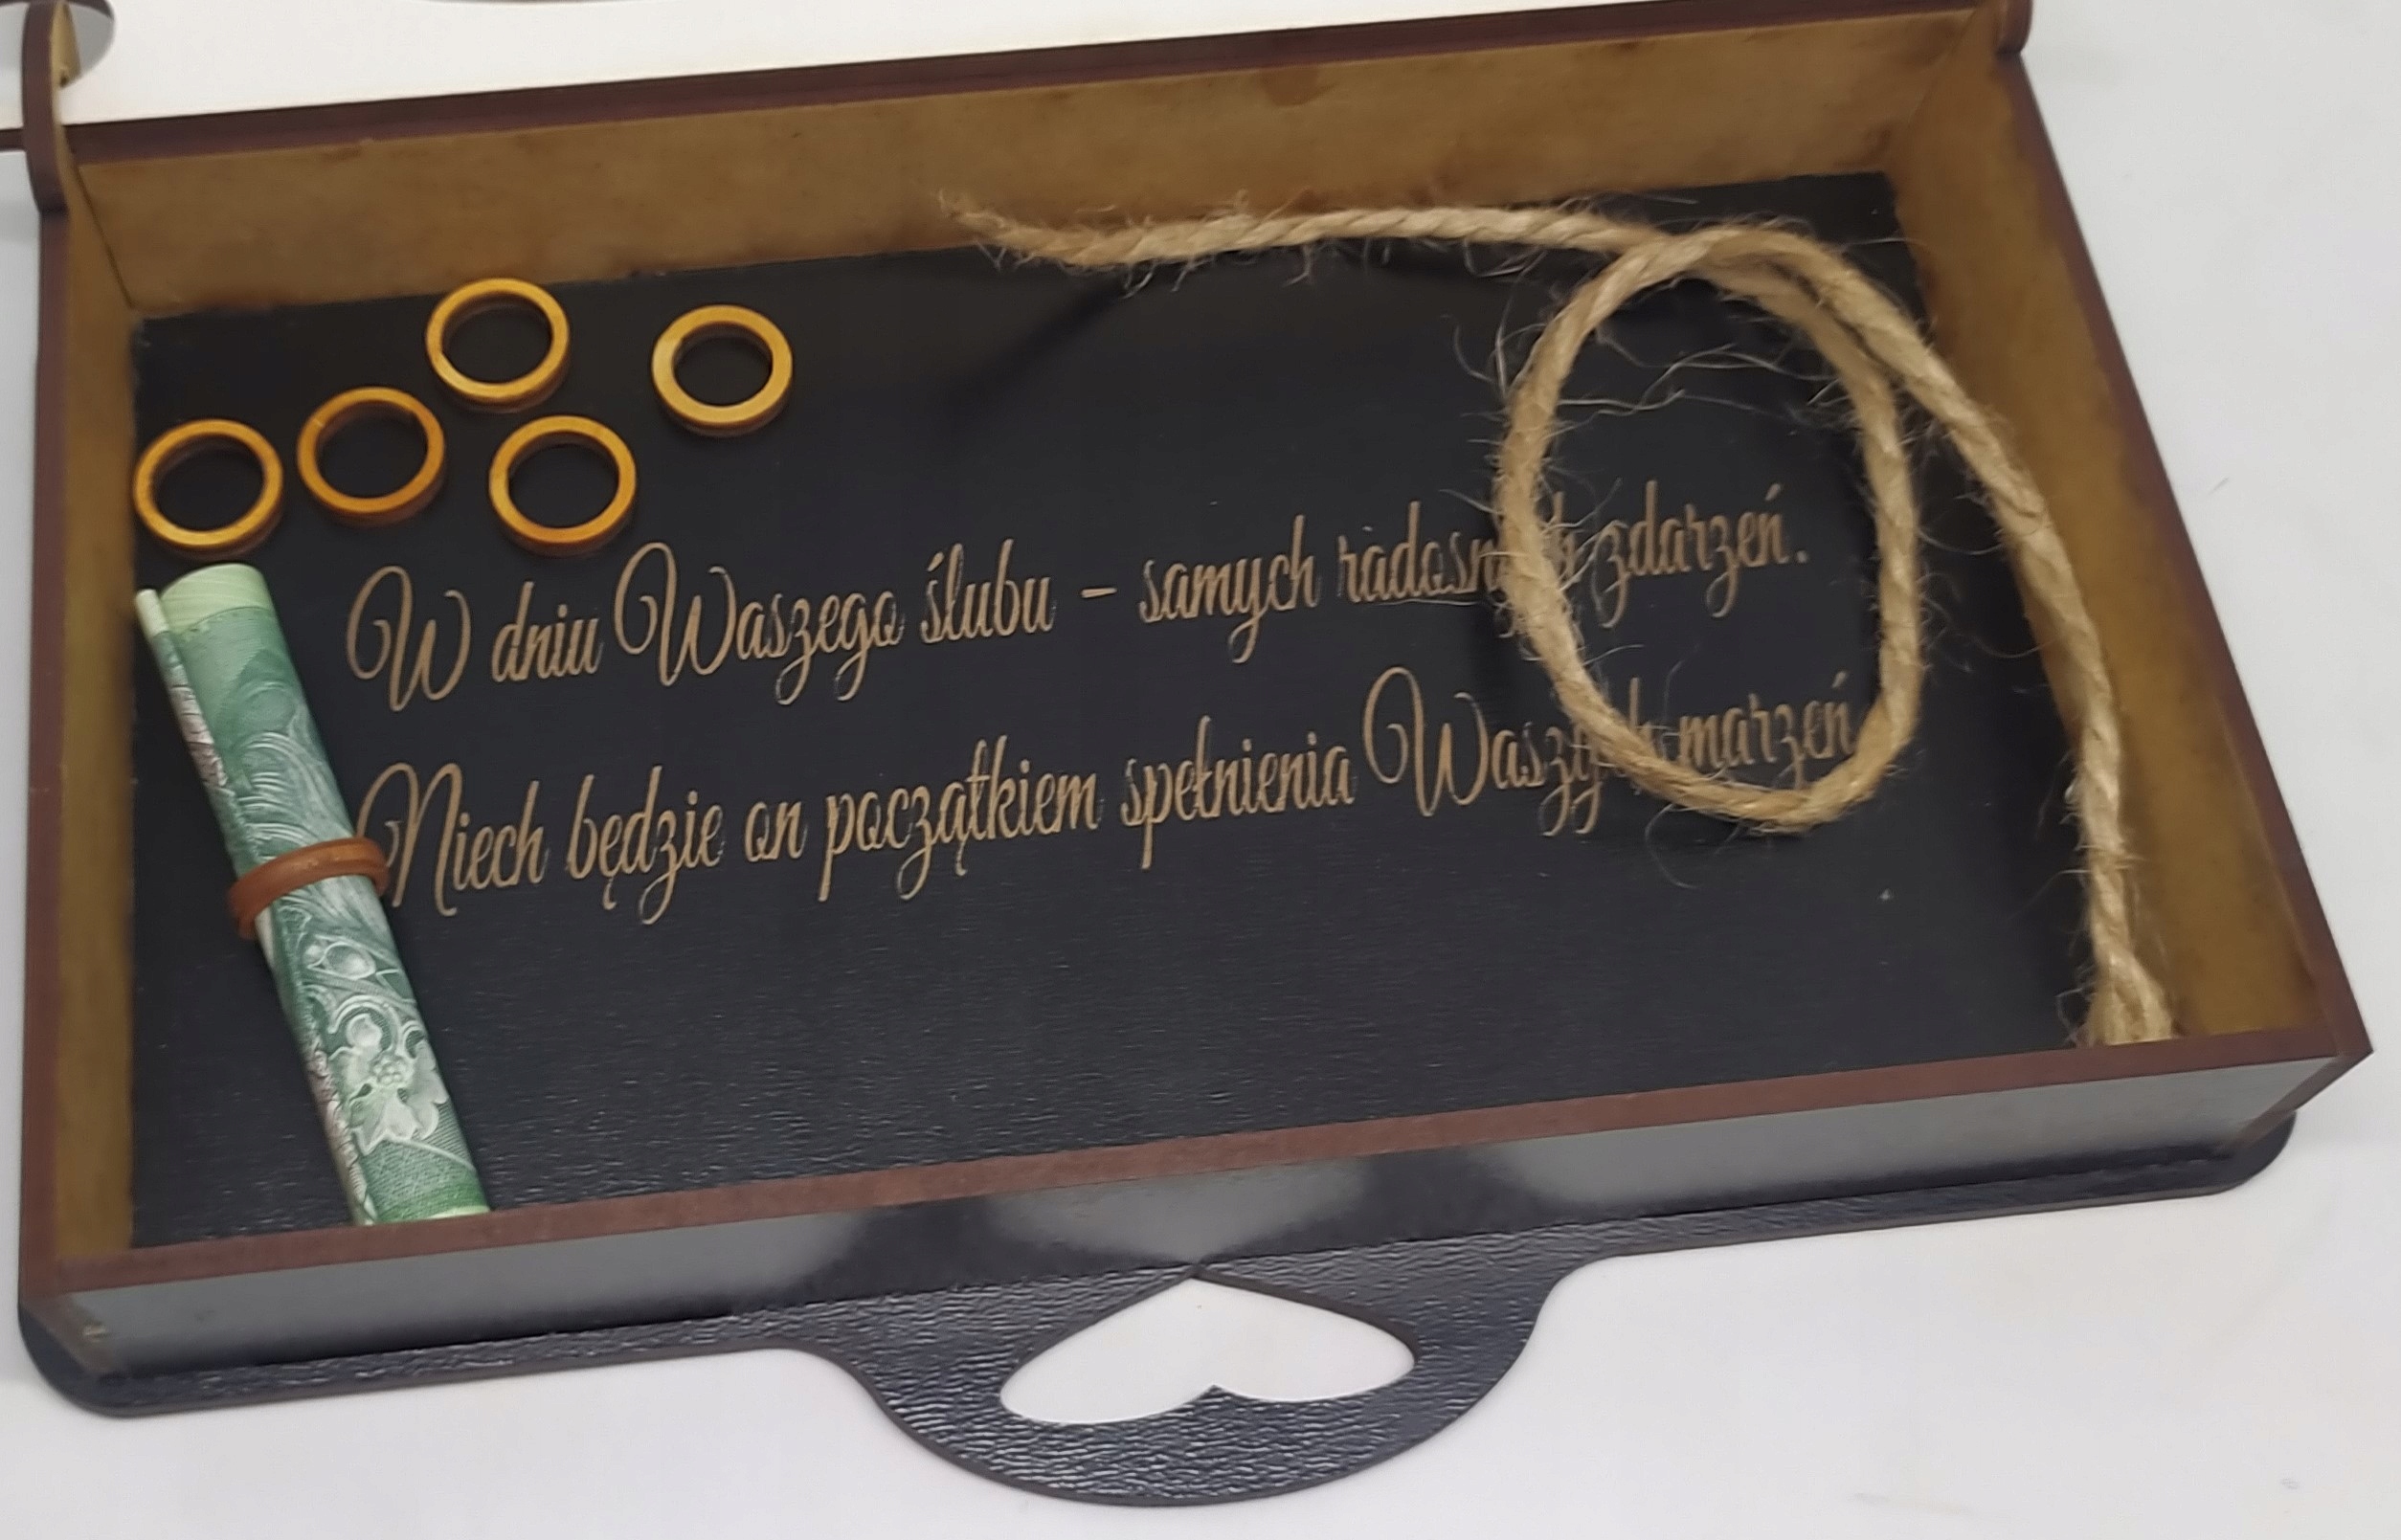 W dniu Waszego ślubu - samych radosnych zdarzeń.
Niech będzie on początkiem spełnienia Waszych marzeń